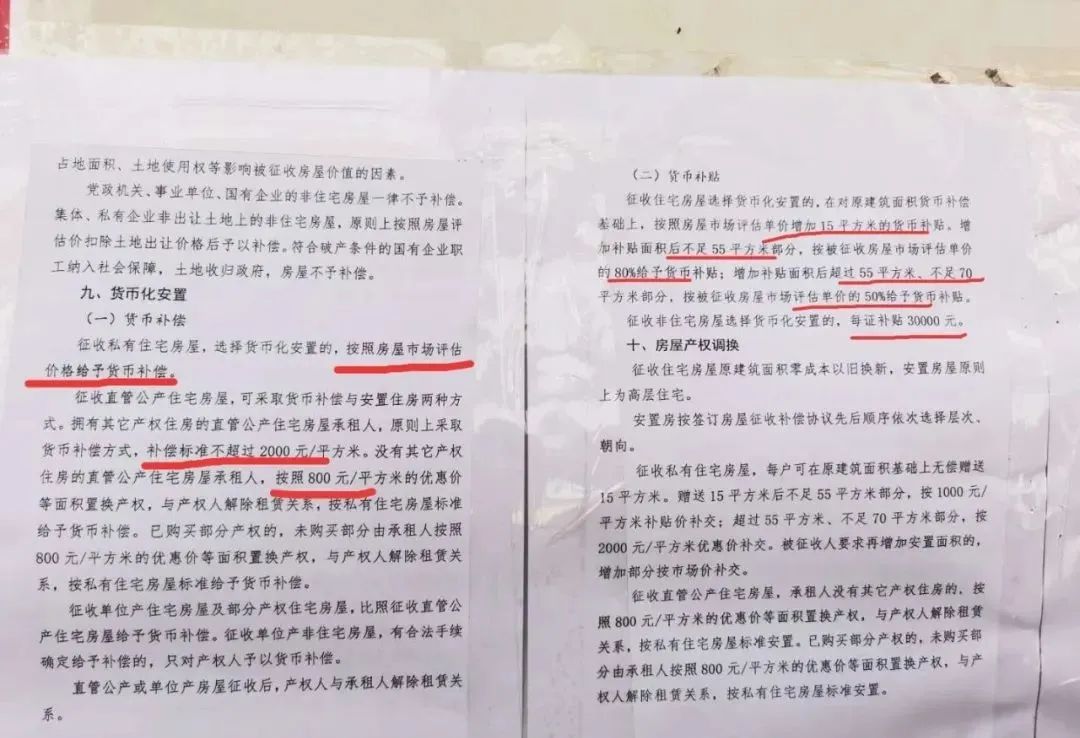 占地面积、土地使用权等影响被征收房屋价值的因素。
党政机关、事业单位、国有企业的非住宅房屋一律不予补偿。
集体、私有企业非出让土地上的非住宅房屋，原则上按照房屋评
估价扣除土地出让价格后予以补偿。符合破产条件的国有企业职
工纳入社会保障，土地收归政府，房屋不予补偿。
九、货币化安置
（一）货币补偿
征收私有住宅房屋，选择货币化安置的，按照房屋市场评估
价格给予货币补偿。
征收直管公产住宅房屋，可采取货币补偿与安置住房两种方
式。拥有其它产权住房的直管公产住宅房屋承租人，原则上采取
货币补偿方式，补偿标准不超过2000元/平方米。没有其它产权
住房的直管公产住宅房屋承租人，按照800元/平方米的优惠价
等面积置换产权，与产权人解除租赁关系，按私有住宅房屋标准
给予货币补偿。已购买部分产权的，未购买部分由承租人按照
800元/平方米的优惠价等面积置换产权，与产权人解除租赁关
系，按私有住宅房屋标准给予货币补偿。
征收单位产住宅房屋及部分产权住宅房屋，比照征收直管公
产住宅房屋给予货币补偿。征收单位产非住宅房屋，有合法手续
确定给予补偿的，只对产权人予以货币补偿。
直管公产或单位产房屋征收后，产权人与承租人解除租赁关
系。
（二）货币补贴
征收住宅房屋选择货币化安置的，在对原建筑面积货币补偿
基础上，按照房屋市场评估单价增加15平方米的货币补贴。增
加补贴面积后不足55平方米部分，按被征收房屋市场评估单价
的80%给予货币补贴；增加补贴面积后超过55平方米、不足70
平方米部分，按被征收房屋市场评估单价的50%给予货币补贴。
征收非住宅房屋选择货币化安置的，每证补贴30000元。
十、房屋产权调换
征收住宅房屋原建筑面积零成本以旧换新，安置房屋原则
上为高层住宅。
安置房按签订房屋征收补偿协议先后顺序依次选择层次、
朝向。
征收私有住宅房屋，每户可在原建筑面积基础上无偿赠送
15平方米。赠送15平方米后不足55平方米部分，按1000元/
平方米补贴价补交；超过55平方米、不足70平方米部分，按
2000元/平方米优惠价补交。被征收人要求再增加安置面积的，
增加部分按市场价补交。
征收直管公产房屋，承租人没有其它产权住房的，按
照800元/平方米的优惠价等面积置换产权，与产权人解除租赁
关系，按私有住宅房屋标准安置。已购买部分产权的，未购买部
分由承租人按照800元/平方米的优惠价等面积置换产权，与产
权人解除租赁关系，按私有住宅房屋标准安置。